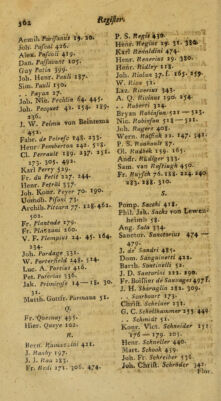 362
Register.
Aemih. Parisanus 19. 20.
Joh. Pascal 426.
Alex. Pascoli 419.
Dan. Passavant 105.
Guy Patin 399.
Joh. Henr. Pauli 137.
Sim. Pauli 150.
- Payan 27.
Joh. Nic. Pechlin 64. 445.
Joh. Pecquet 41. 154. 189.
236.
J. W. Peima von Beintema
452.
Fabr. de Peiresc 148. 233.
Henr. Pembarton 248. 518.
Cl. Perrault 189. 237. 251.
273. 305. 491.
Karl Perry 529.
Fr. du Petit 217. 244.
Henr. Peträi 357.
Joh. Konr. Peyer 70. 190.
Uomob. Pisoni 71.
Archib. Pitcarn 77. 128. 462.
502.
Fr. Plantade 279.
Fr. Platzoni 260.
V. F. Plempius 24. 45. 164.
234.
Joh. Pordage 331.
W. Porterfield 248. 524.
Luc. A. Portius 416.
Pet. Poterius 356.
Jak. Primirose 14 — 18. 30.
31.
Matth. Gottfr. Purmann 51.
Q.
Fr. Quesnay 495.
Hier. Queye 102.
R.
Bern. Ramazzini 421.
J. Rasby 197.
J. J. Rau 283.
Fr. Redi 171. 306. 474.
P. S. Regis 430.
Henr. Regius 29. 31. 380.
Karl Reinoldini 474.
Henr. Renerius 29. 380.
Henr. Ridley 118.
Joh. Riolan 37. f. 165. 259.
W. Riva 51.
Laz. Riverius 343.
A. Q. Rivinus 190. 254.
.. Roberti 324.
Bryan Robinson 521 — 523.
Nic. Robinson 520 — 521.
Joh. Rogers 408.
Wern. Rolfink 22. 147. 541.
P. S. Rouhault 87.
Ol. Rudbek 159. 165.
Andr. Rüdiger 331.
Sam. van Ruyslaagh 450.
Fr. Ruysch 76. 188. 224. 240.
283. 288. 310.
S.
Pomp. Sacchi 418.
Phil. Jak. Sachs von Lewen-
heimb 58.
Ang. Sala 334.
Sanctor. Sanctorius 474 —
479.
J. de Sandri 485.
Dom. Sanguinetti 421.
Barth. Santinelli 52.
J. D. Santorini 121. 290.
Fr. Boissier de Sauvages 497 f.
J. H. Sbaraglia 281. 309.
- Scarburr 275.
Christ. Scheiner 231.
G. C. Schellhammer 255 449
- Schmidt 51.
Konr. Vict. Schneider 151
176 — 179. 205.
Henr. Schneller 440.
Mart. Schook 459.
Joh. Fr. Schreiber 536.
Joh. Christ. Schröder 342.